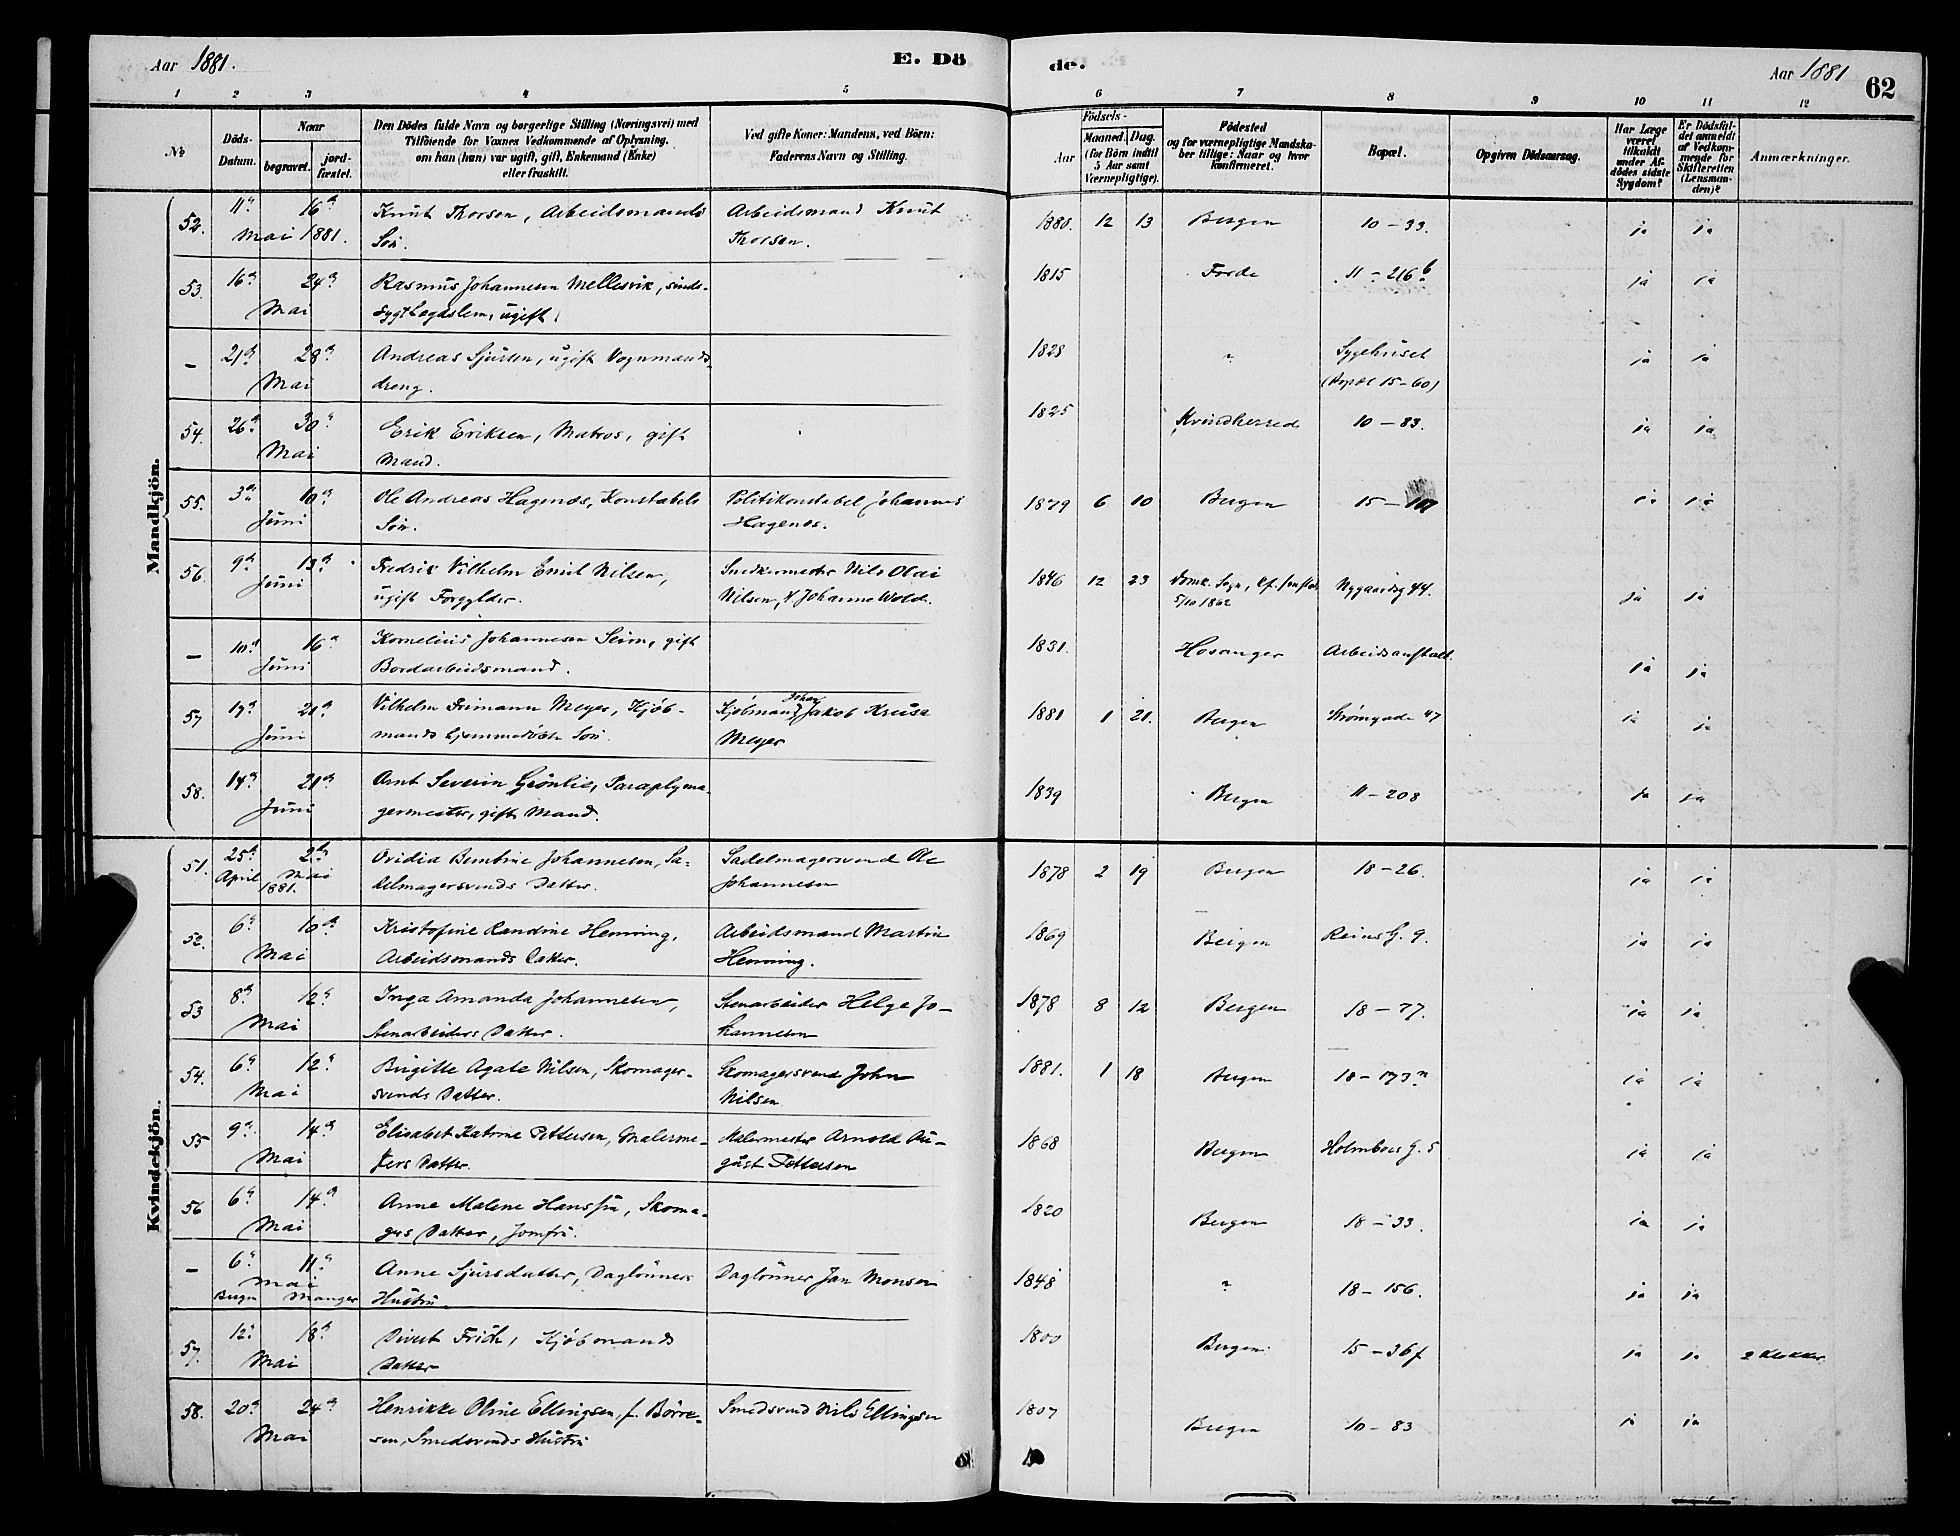 Aar 1881.
E. Dö
de.
Aar 1881
62
1 2 3 4 5 6 7 8 9 10 11 12
No
Döds-Datum.
Naar
begravet.
jord-fæstet.
Den Dödes fulde Navn og borgerlige Stilling (Næringsvei) med
Tilföiende for Voxnes Vedkommende af Oplysning,
om han (hun) var ugift, gift, Enkemand (Enke)
eller fraskilt.
Ved gifte Koner: Mandens, ved Börn:
Faderens Navn og Stilling.
Födsels-
Aar
Maaned. Dag.
(for Börn indtil
5 Aar samt
Værnepligtige).
Födested
og for værnepligtige Mandska-
ber tillige: Naar og hvor
konfirmeret.
Bopæl.
Opgiven Dödsaarsag.
Har Læge
været
tilkaldt
under Af-
dödes sidste
Sygdom?
Er Dödsfal-
det anmeldt
af Vedkom-
mende for
Skifteretten
(Lensman-
den)?
Anmærkninger.
Mandkjön.
52. 11te 16de Knut Thorsen, Arbeidsmands Arbeidsmand Knut 1880. 12 13 Bergen 10-33. ja ja
Mai 1881. Sön. Thorsen.
53. 16de 24de Rasmus Johannesen Mellesvik, sinds- 1815 Förde 11-216b ja ja
Mai sygt Lægdslem, ugift.
- 21de 28de Andreas Sjursen, ugift Vognmands- 1828 ? Sygehuset ja ja
Mai dreng. (Bopæl 15-60)
54. 26de 30te Erik Eriksen, Matros, gift 1825 Kvindherred 10-83. ja ja
Mai Mand.
55. 3die 10de Ole Andreas Hagenæs, Konstabels Politikonstabel Johannes 1879 6 10 Bergen 15- ja ja
Juni Sön. Hagenæs.
56. 9de 13de Fredrik Vilhelm Emil Nilsen, Snedkermester Nils Olai 1846 12 23 Domk. Sogn, Nygaardsg 44. ja ja
Juni ugift Forgylder. Nilsen, Johanne Wold. 5/10 1862
- 10de 16de Kornelius Johannesen Seim, gift 1831. Hosanger Arbeidsanstalt. ja ja
Juni Bordarbeidsmand.
57 21de Vilhelm Frimann Meyer, Kjöb- Kjöbmand Johan Jakob Kruse 1881 1 21. Bergen Strömgade 47 ja ja
Juni mands hjemmedöbte Sön. Meyer
58. 14de 21de Arnt Severin Grönlie, Paraplyma- 1839 Bergen 11-208 ja ja
Juni germester, gift Mand.
Kvindekjön.
51. 25de 2den Ovidia Bentine Johannesen, Sa- Sadelmagersvend Ole 1878 2 19 Bergen 18-26. ja ja
April Mai 1881. delmagersvends Datter. Johannesen
52. 6te 10de Kristofine Randine Henning, Arbeidsmand Martin 1869 Bergen Reins G. 9. ja ja
Mai Arbeidsmands Datter. Henning.
53 8de 12te Inga Amanda Johannesen, Stenarbeider Helge Jo- 1878 8 12 Bergen 18-77. ja ja
Mai Stenarbeiders Datter. hannesen
54. 6te 12te Birgitte Agate Nilsen, Skomager- Skomagersvend John 1881. 1 18 Bergen 18-173 ja ja
Mai svends Datter. Nilsen
55 9de 14de Elisabet Katrine Pettersen, Malerme- Malermester Arnold Au- 1868 Bergen Holmboes G. 5 ja ja
Mai sters Datter. gust Pettersen
56 6te 14de Anne Malene Hansen, Skoma- 1820 Bergen 18-33. ja ja
Mai gers Datter, Jomfru.
- 6te 11te Anne Sjursdatter, Daglönners Daglönner Jan Monsen 1848 ? 18-156. ja ja
Mai Bergen Manger Hustru.
57. 12te 18de Divert Frich, Kjöbmands 1800 Bergen 15-36f ja ja 2 Klokker.
Mai Datter
58. 20de 24de Henrikke Oline Ellingsen, f. Börre- Smedsvend Nils Ellingsen 1807 Bergen 10-83 ja ja
Mai sen, Smedsvends Hustru